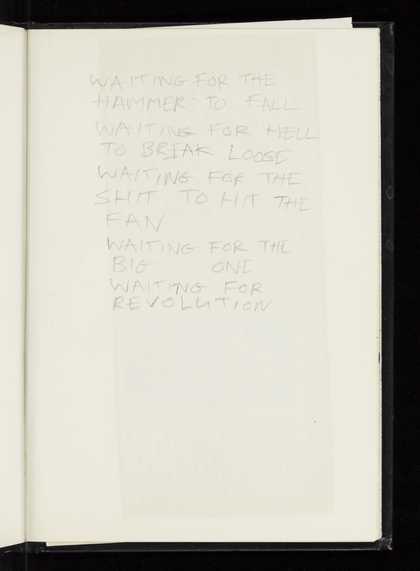 WAITING FOR THE
HAMMER TO FALL
WAITING FOR HELL
TO BREAK LOOSE
WAITING FOR THE
SHIT TO HIT THE
FAN
WAITING FOR THE
BIG ONE
WAITING FOR
REVOLUTION